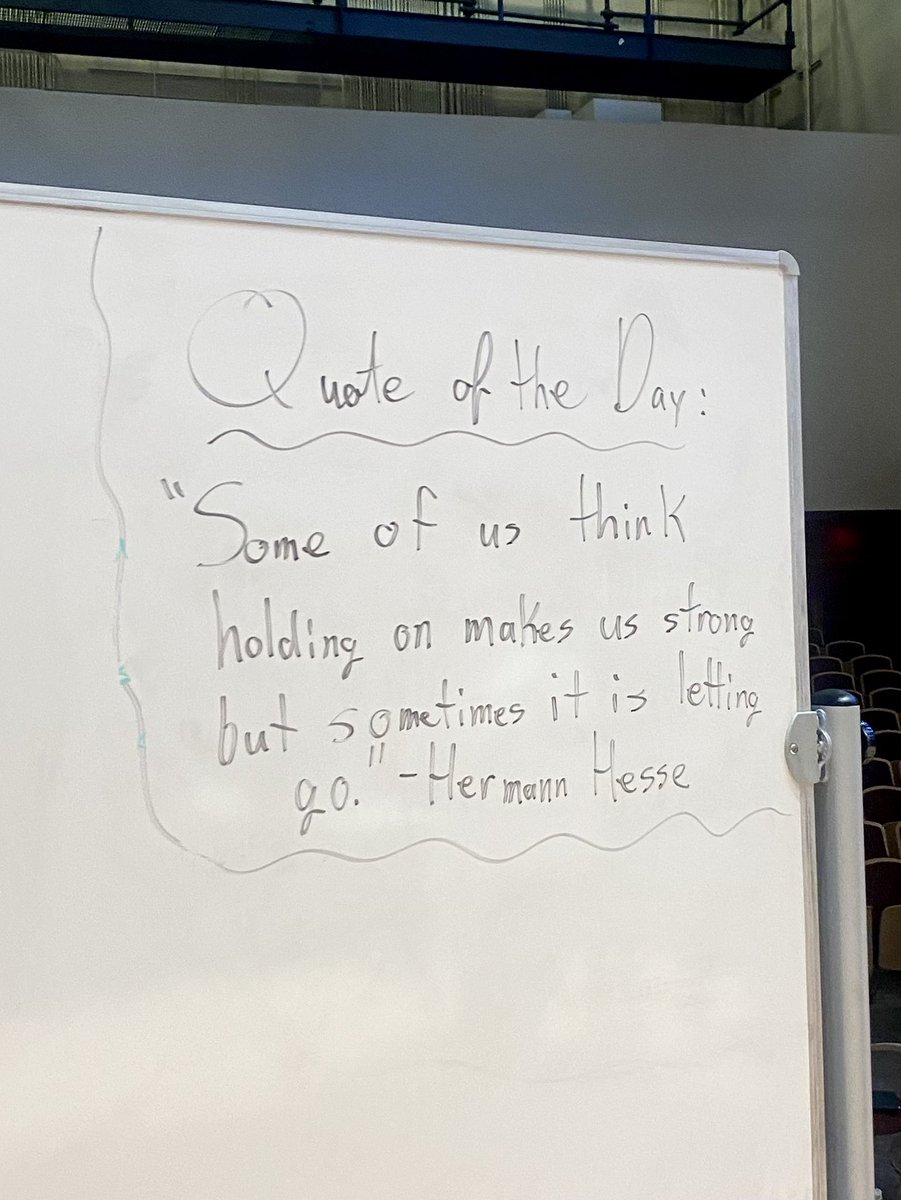 Quote of the Day:
"Some of us think
holding on makes us strong
but sometimes it is letting
go." -Hermann Hesse